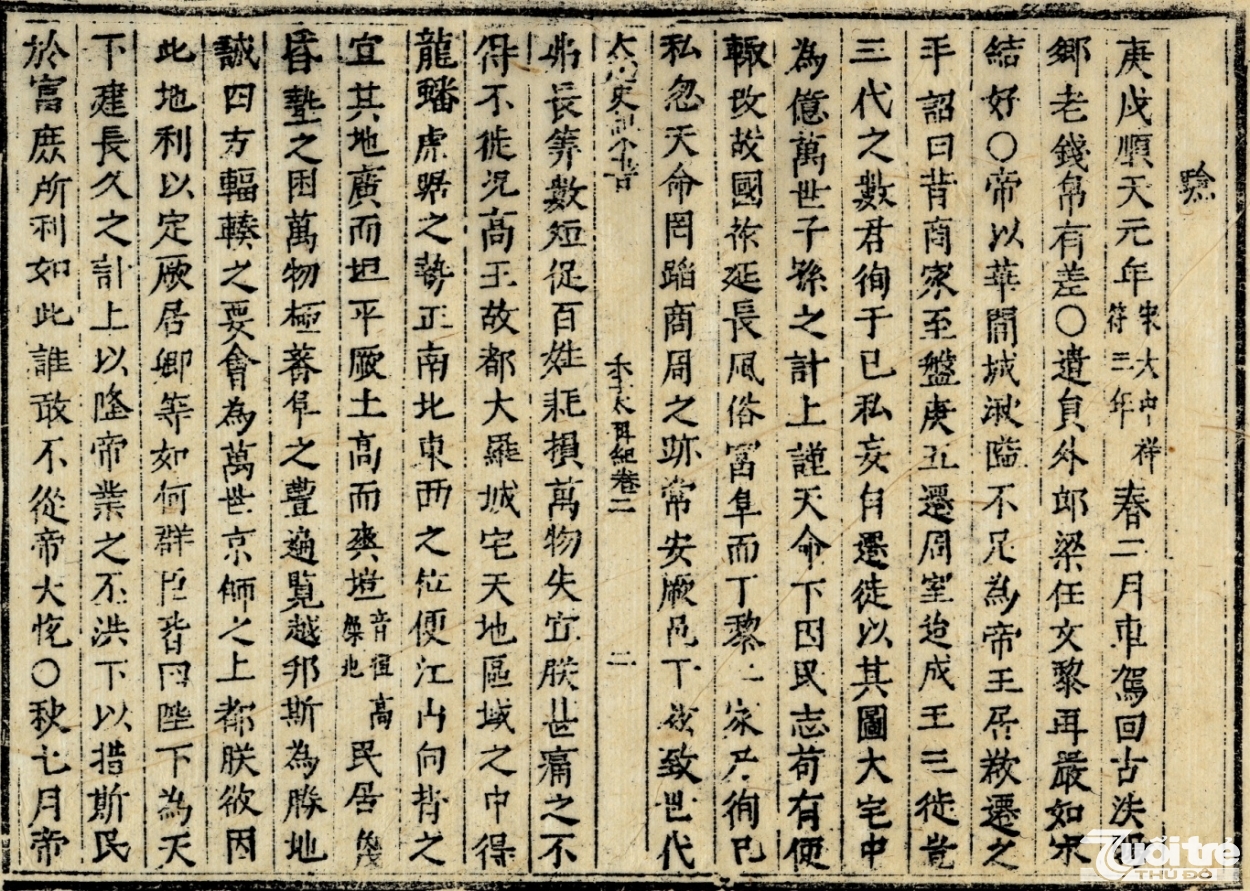 驗
庚戌順天元年宋大中祥符三年春二月車駕回古法
鄉老錢帛有差○遣員外郎梁任文黎再嚴如宋
結好○帝以華閭城湫隘不足為帝王居欲遷之
手詔曰昔商家至盤庚五遷周室迨成王三徙豈
三代之數君徇于己私妄自遷徙以其圖大宅中
為億萬世子孫之計上謹天命下因民志苟有便
輒改故國祚延長風俗富阜而丁黎二家乃徇己
私忽天命罔蹈商周之跡常安厥邑于兹致世代
大越史記本 李太祖紀卷二 二
弗長算數短促百姓耗損萬物失宜朕甚痛之不
得不徙況高王故都大羅城宅天地區域之中得
龍蟠虎踞之勢正南北東西之位便江山向背之
宜其地廣而坦平厥土高而爽塏音愷高燥地民居蔑
昏墊之困萬物極蕃阜之豐遍覽越邦斯為勝地
誠四方輻輳之要會為萬世京師之上都朕欲因
此地利以定厥居卿等如何群臣皆曰陛下為天
下建長久之計上以隆帝業之丕洪下以措斯民
於富庶所利如此誰敢不從帝大悅○秋七月帝
Tuổi trẻ
THỦ ĐÔ